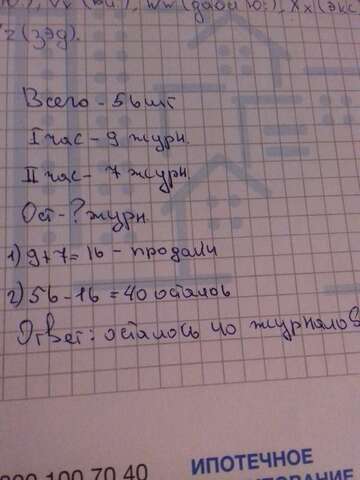 z (зэд).
Всего - 56 шт
I час - 9 журн.
II час - 7 журн.
Ост - ? журн.
1) 9+7=16 - продали
2) 56-16=40 осталось
Ответ: осталось 40 журналов
100 70 40
ИПОТЕЧНОЕ